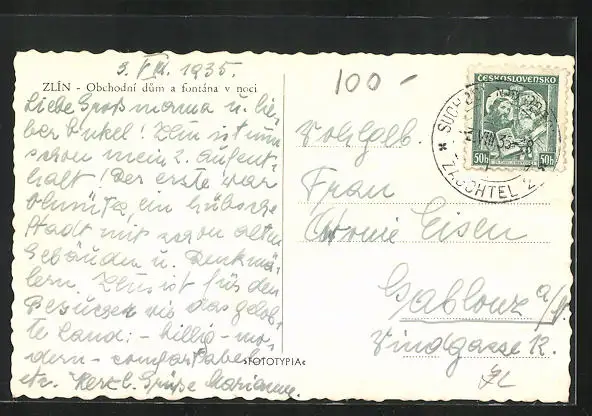 3. VIII. 1935.
ZLÍN - Obchodní dům a fontána v noci
Liebe Großmama u. lie-
ber Onkel! Zlin ist nun
schon mein 2. Aufent-
halt! Der erste war
Olmütz, ein hübsche
Stadt mit schon alten
Gebäuden u. Denkmä-
lern. Zlin ist für den
Besucher wie das gelob-
te Land: - billig - mo-
dern - comfortabel
etc. Herzl. Grüße Marianne.
FOTOTYPIA
100 -
ČESKOSLOVENSKO
50h 50h
SUCHDOL
ZAUCHTEL
VIII 35
Wohlgeb.
Frau
Eisen
Gablonz a/N.
Windgasse 12.